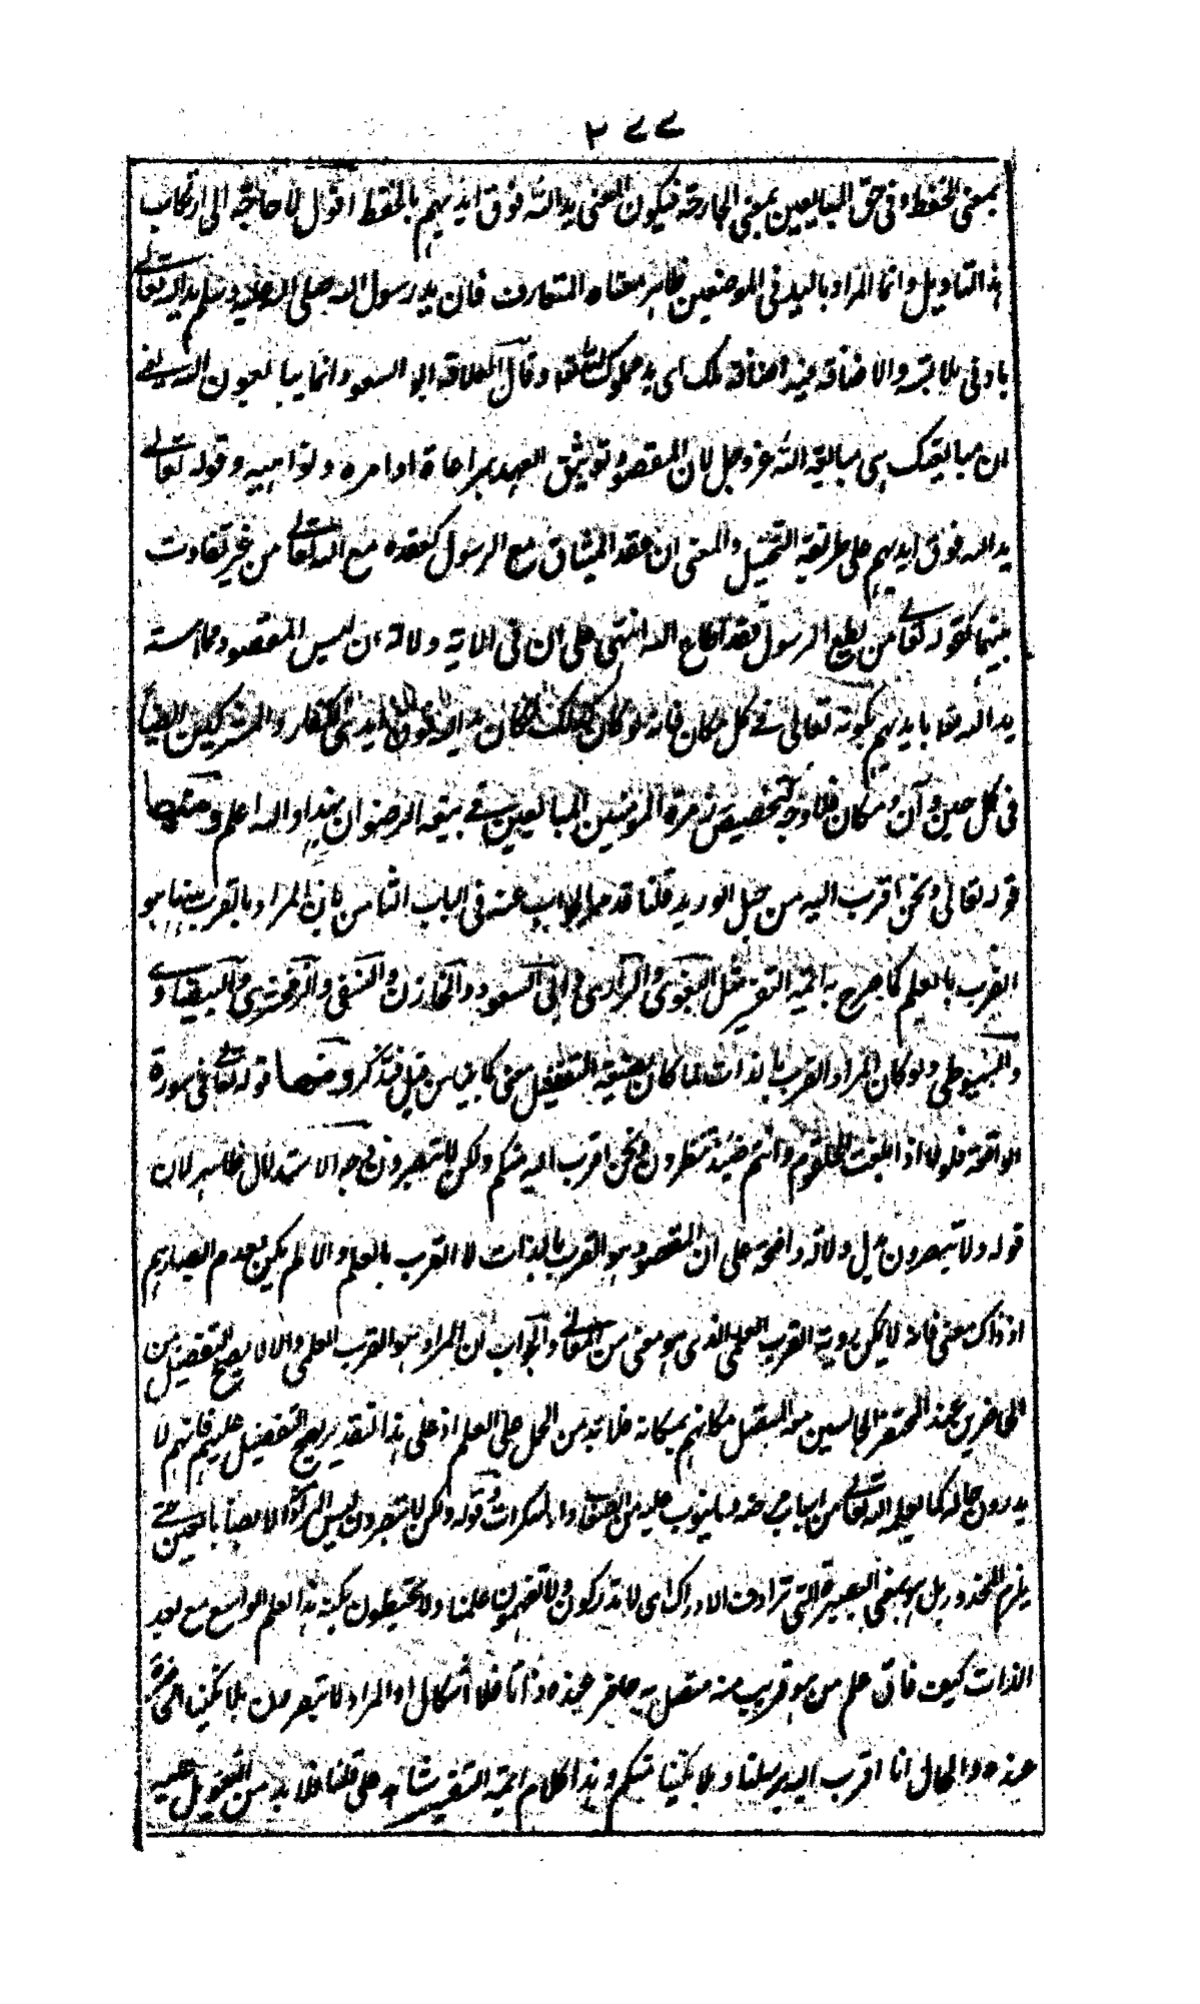 ٢٧٧
بمعنى الحفظ وفى حق المبايعين بمعنى الجارحة فيكون المعنى يد الله فوق ايديهم بالحفظ اقول لا حاجة الى ارتكاب
هذا التاويل وانما المراد باليد فى الموضعين ظاهر معناه المتعارف فان يد رسول الله صلى الله عليه وسلم يد الله تعالى
بادنى ملابسة والاضافة فيه اضافة ملك اى يد مملوك لله وقال العلامة ابو السعود انما يبايعون الله يعنى
ان مبايعتك هى مبايعة الله عز وجل لان المقصود توثيق العهد بمراعاة اوامره ونواهيه وقوله تعالى
يد الله فوق ايديهم على طريقة التخييل والمعنى ان عقد الميثاق مع الرسول كعقده مع الله تعالى من غير تفاوت
بينهما كقوله تعالى من يطع الرسول فقد اطاع الله انتهى على ان فى الاية دلالة ان ليس المقصود مماسة
يد الله بايديهم بكونه تعالى فى كل مكان فانه لو كان كذلك لكان يد الله فوق ايدى الكفار والمشركين ايضا
فى كل حين وآن ومكان فلا وجه لتخصيص زمرة المؤمنين المبايعين فى بيعة الرضوان بهذا والله اعلم ومنها
قوله تعالى ونحن اقرب اليه من حبل الوريد قلنا قد مر الجواب عنه فى الباب الثامن بان المراد بالقرب ههنا هو
القرب بالعلم كما صرح به ائمة التفسير مثل البغوى والرازى وابى السعود والخازن والنسفى والزمخشرى والبيضاوى
والسيوطى ولو كان المراد القرب بالذات لما كان لصيغة التفضيل معنى كما بين من قبل فتذكر ومنها قوله تعالى فى سورة
الواقعة فلولا اذا بلغت الحلقوم وانتم حينئذ تنظرون ونحن اقرب اليه منكم ولكن لا تبصرون وجه الاستدلال ظاهر لان
قوله ولا تبصرون يدل دلالة واضحة على ان المقصود هو القرب بالذات لا القرب بالعلم والا لم يكن لعدم ابصارهم
اذ ذاك معنى فانه لا يمكن روية القرب العلمى الذى هو معنى من المعانى والجواب ان المراد هو القرب العلمى والا لا يصح التفضيل من
الحاضرين عند المحتضر الجالسين مع المتصل مكانهم بمكانه فلا بد من الحمل على العلم اذ على هذا التقدير يصح التفضيل عليهم فانهم لا
يدرون حاله كما يعلم الله تعالى من اسباب وما ينوب عليه من السكرات وقوله ولكن لا تبصرون ليس المراد الابصار بالعين حتى
يلزم المحذور بل هو بمعنى البصيرة التى ترادف الادراك اى لا تدركون ولا تفهمون علمنا ولا تحيطون بكنه هذا العلم الواسع مع بعد
الذات كيف فاق علم من هو قريب منه متصل به حاضر عنده ذاتا فلا اشكال او المراد لا تبصرون ملائكتنا
عنده والحال انا اقرب اليه برسلنا وملائكتنا منكم وهذا كلام ائمة التفسير شاهد على قلنا فلا بد من التعويل عليه